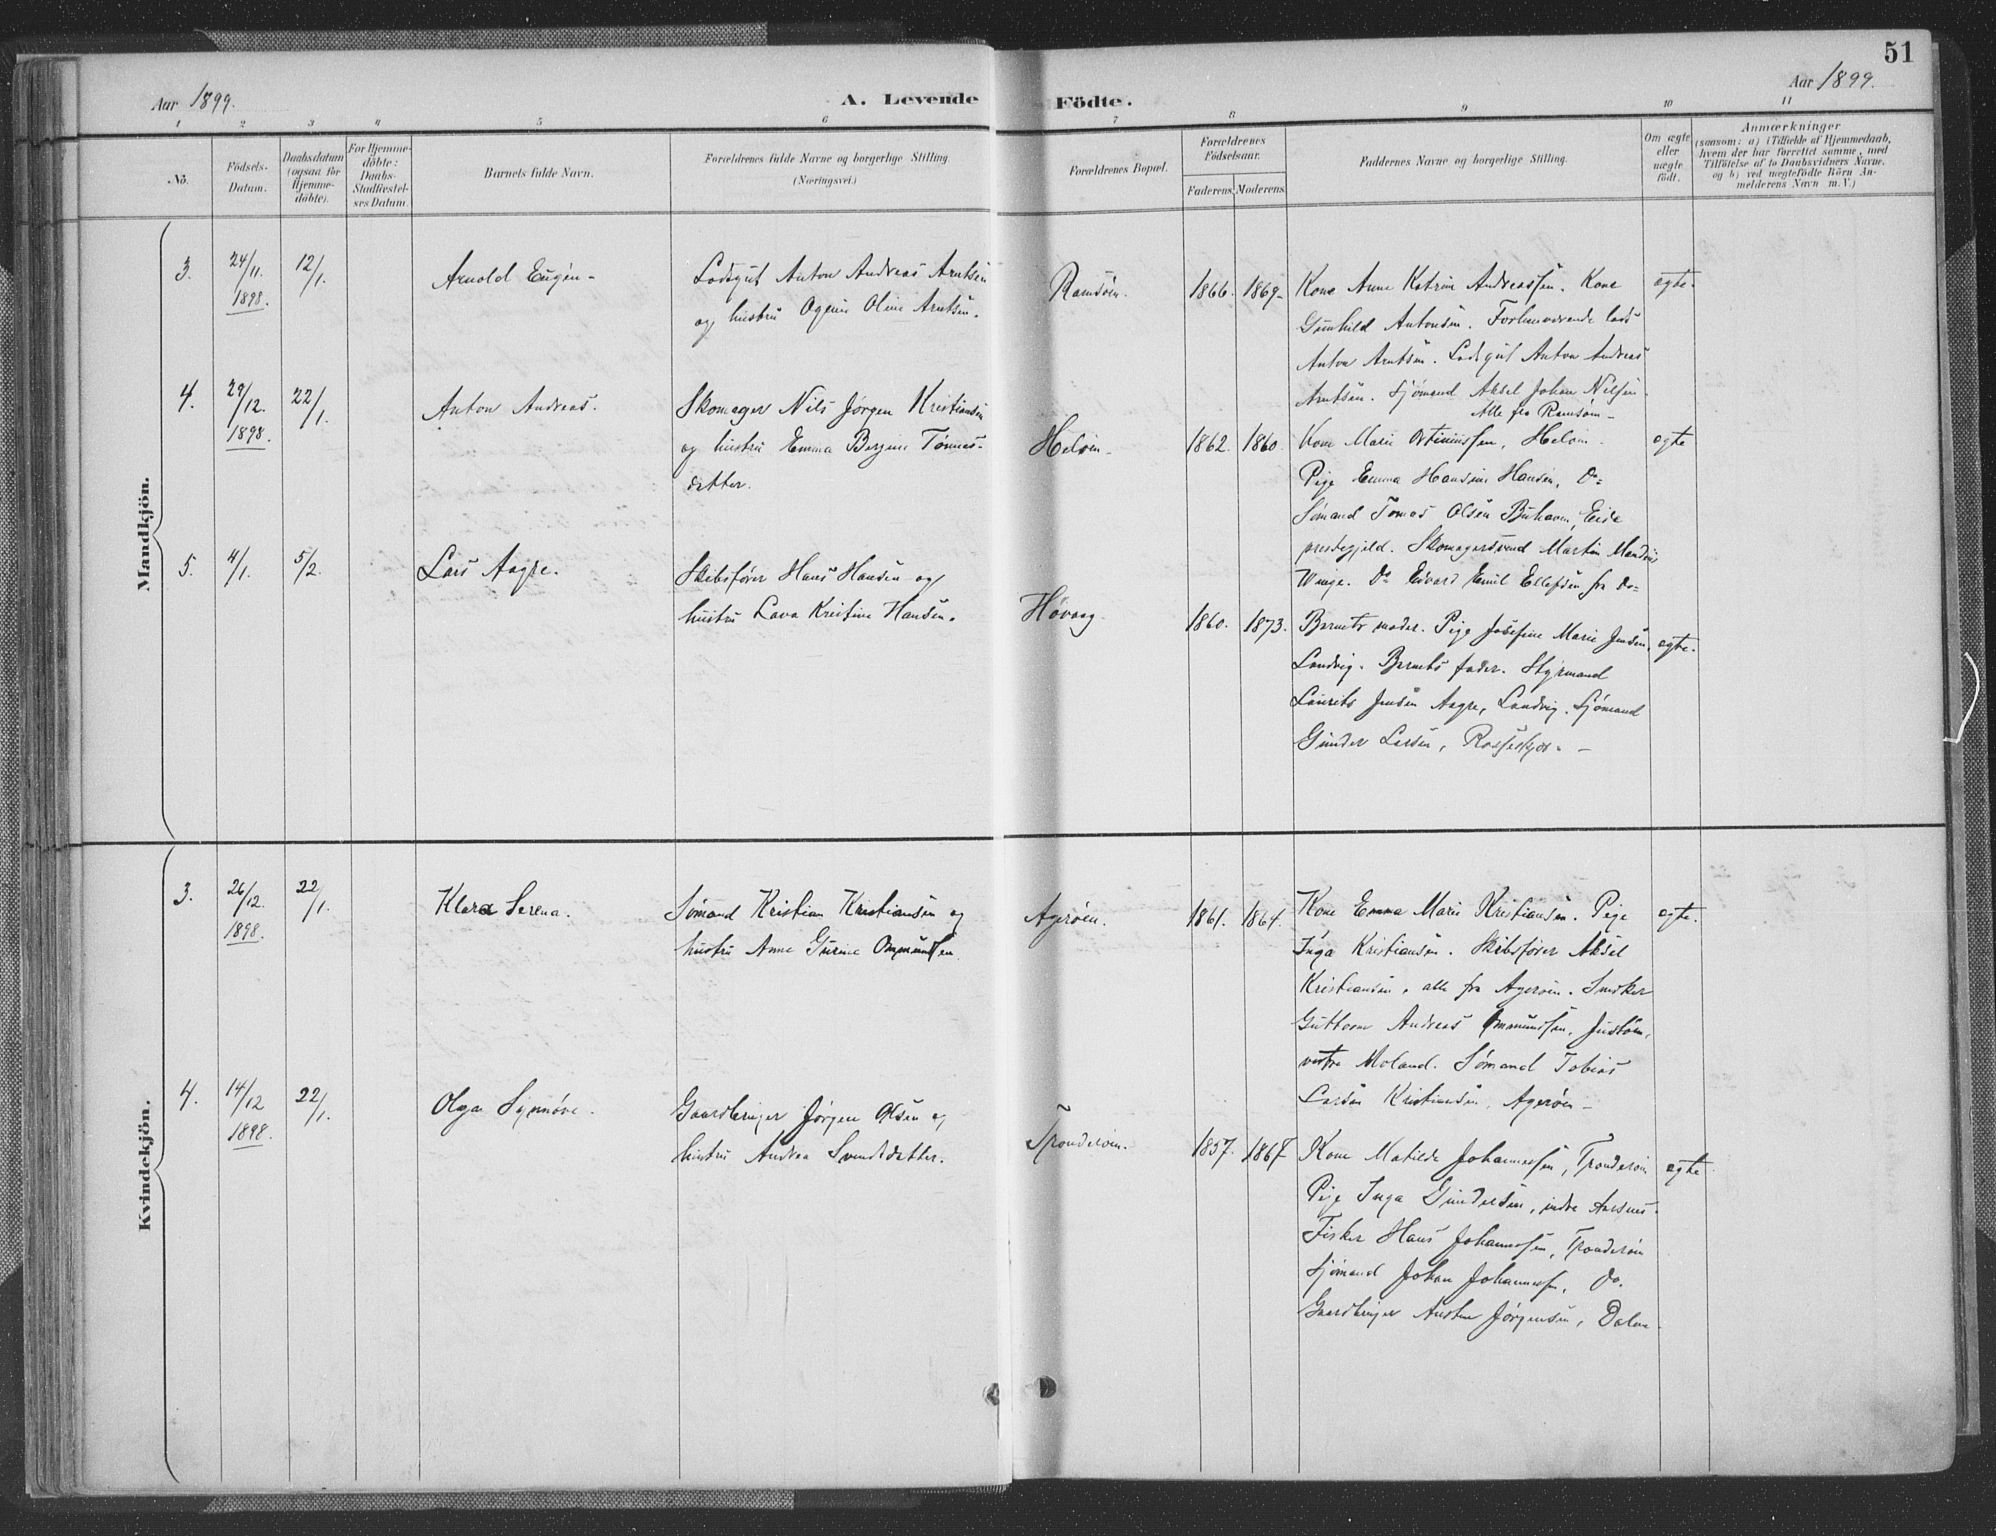 51
Aar 1899.
A. Levende Födte.
Aar 1899.
1 2 3 4 5 6 7 8 9 10 11
No.
Födsels-Datum.
Daabsdatum (ogsaa for Hjemme-døbte).
For Hjemme-døbte: Daabs-Stadfæstel-ses Datum.
Barnets fulde Navn.
Forældrenes fulde Navne og borgerlige Stilling (Næringsvei.)
Forældrenes Bopæl.
Forældrenes Födselsaar.
Faderens. Moderens.
Faddernes Navne og borgerlige Stilling.
Om ægte eller uægte født.
Anmærkninger
(saasom: a) i Tilfælde af Hjemmedaab,
hvem der har forrettet samme, med
Tilföielse af to Daabsvidners Navne.
og b) ved uægtefödte Börn An-
melderens Navn m. V.)
Mandkjön.
3. 24/11. 1898. 12/1. Arnold Eugen -
Lodsgut Anton Andreas Arntsen
og hustru Ogine Oline Arntsen.
Ramsøen. 1866. 1869-
Kone Anne Katrine Andreassen. Kone
Gunhild Antonsen. Forhenværende lods
Anton Arntsen. Lodsgut Anton Andreas
Arntsen. Sjømand Aksel Johan Nilsen.
Alle fra Ramsøen -
ægte.
4. 29/12. 1898. 22/1. Anton Andreas.
Skomager Nils Jørgen Kristiansen
og hustru Emma Bergine Tønnes-
datter.
Heløen - 1862. 1860.
Kone Marie Ortiniussen, Heløen.
Pige Emma Hansine Hansen, Do=
Sømand Tomas Olsen Buhavn, Eide
prestegjeld. Skomagersvend Martin Mandius
Winge. Do Edvard Emil Ellefsen fra Do=
ægte
5. 4/1. 5/2. Lars Aagre.
Skibsfører Hans Hansen og
hustru Lava Kristine Hansen.
Høvaag. 1860. 1873.
Barnets moder. Pige Josefine Marie Jensen,
Landvig. Barnets fader. Styrmand
Laurits Jensen Aagre, Landvig. Sjømand
Gunder Larsen,
ægte.
Kvindekjön.
3. 26/12. 1898. 22/1. Klara Serena.
Sømand Kristian Kristiansen og
hustru Anne Gurine Ommundsen.
Agerøen. 1861. 1864.
Kone Emma Marie Kristiansen. Pige
Inga Kristiansen. Skibsfører Aksel
Kristiansen, alle fra Agerøen. Snedker
Guttorm Andreas Ommundsen, Justøen,
vestre Moland. Sømand Tobias
Larsen Kristiansen, Agerøen -
ægte.
4. 14/12 1898. 22/1. Olga Synnøve.
Gaardbruger Jørgen Olsen og
hustru Andrea Svendsdatter.
Tronderøen. 1857. 1867
Kone Matilde Johannessen, Tronderøen
Pige Inga Gundersen, indre Aarsnes.
Fisker Hans Johannessen, Tronderøen
Sjømand Johan Johannessen, Do.
Gaardbruger Austen Jørgensen, Dalene.
ægte